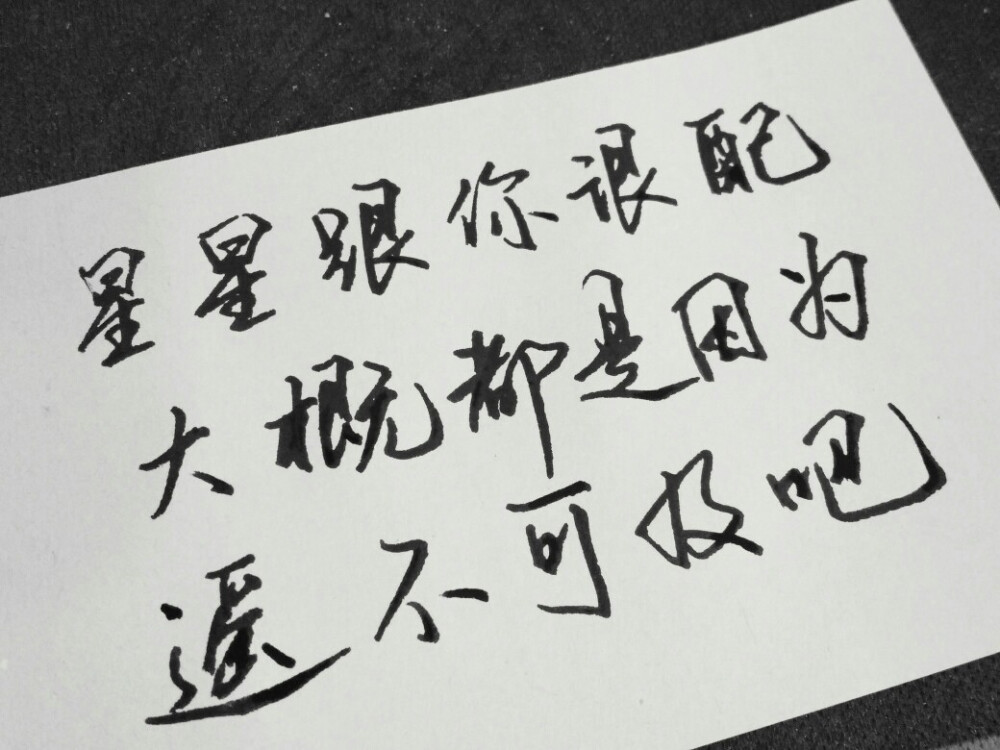 星星跟你很配
大概都是因为
遥不可及吧